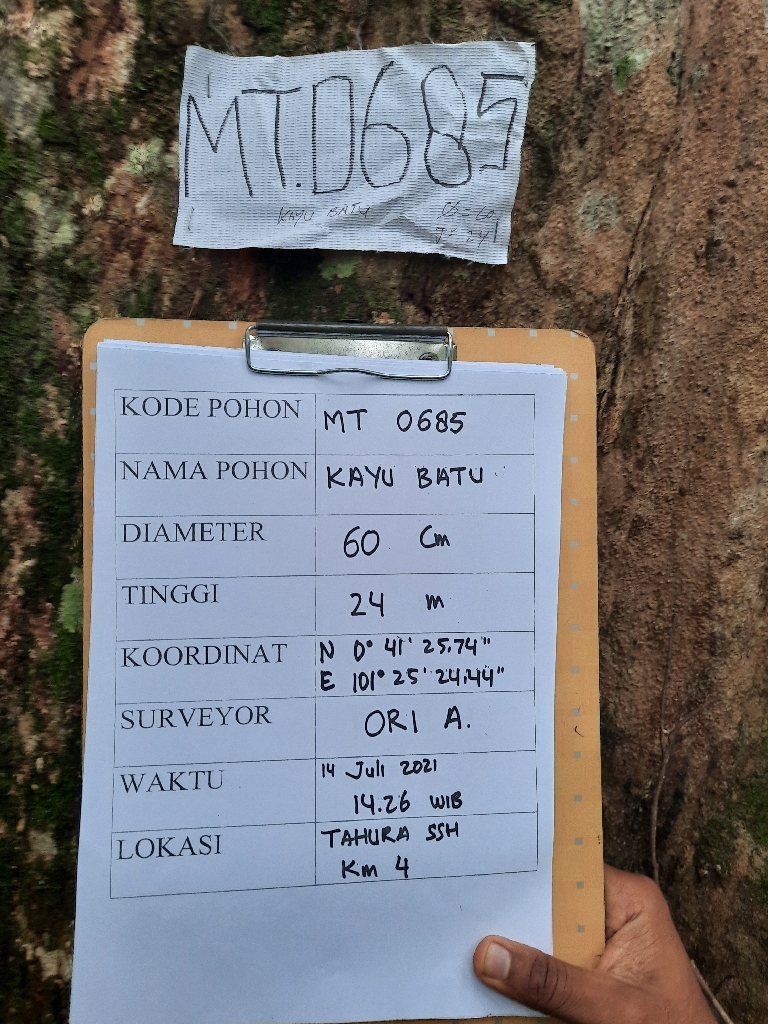 MT.0685
KAYU BATU
KODE POHON MT 0685
NAMA POHON KAYU BATU
DIAMETER 60 Cm
TINGGI 24 m
KOORDINAT N 0° 41' 25.74"
E 101° 25' 24.44"
SURVEYOR ORI A.
WAKTU 14 Juli 2021
14.26 WIB
LOKASI TAHURA SSH
Km 4